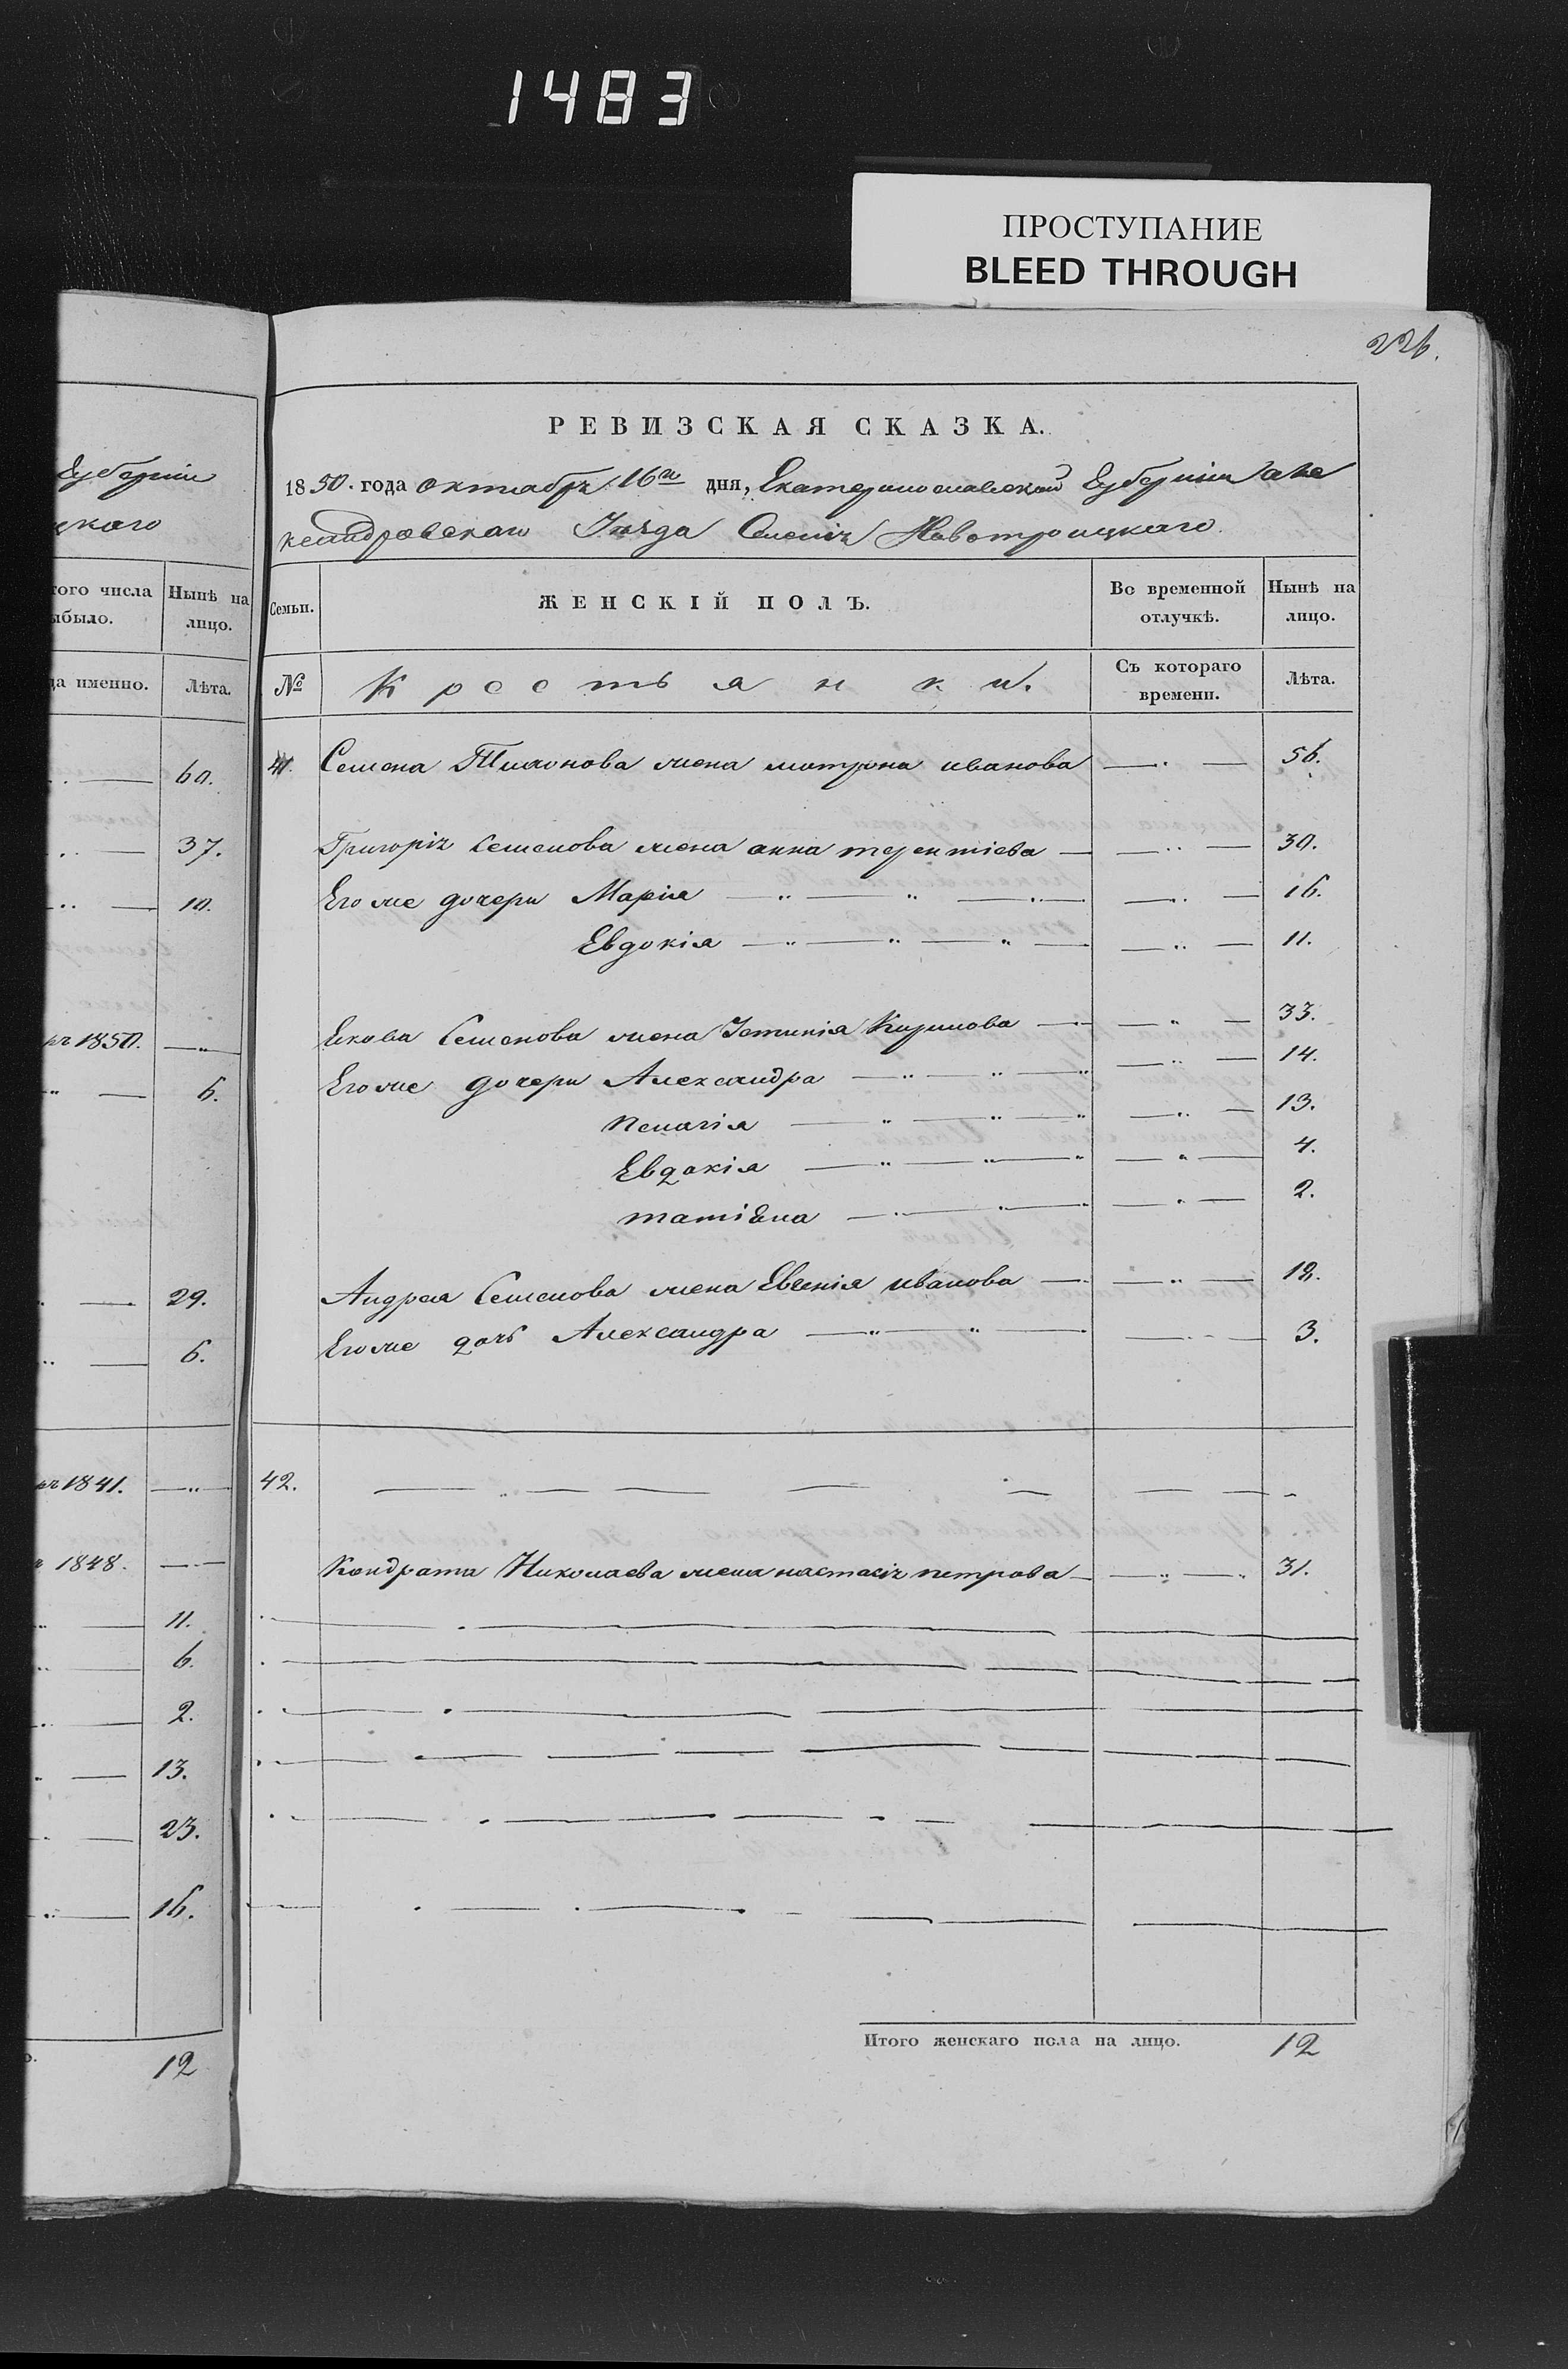 1483
ПРОСТУПАНИЕ
BLEED THROUGH
226.
Губерніи
цкаго
того числа
ыбыло.
Нынѣ на
лицо.
да именно.
Лѣта.
60.
37.
10.
1850.
6.
29.
6.
1841.
1848.
11.
6.
2.
13.
23.
16.
12
РЕВИЗСКАЯ СКАЗКА.
1850. года октабръ 16го дня, Екатеринославской Губерніи Але
ксандровскаго Уѣзда Селенія Новотроицкаго
Семьи.
ЖЕНСКІЙ ПОЛЪ.
Во временной
отлучкѣ.
Нынѣ на
лицо.
№
Крестьянки.
Съ котораго
времени.
Лѣта.
41. Семена Тихонова жена матрона иванова 56.
Григорія Семенова жена анна терентіева 30.
Его же дочери Марія 16.
Евдокія 11.
Екова Семенова жена Устинія Кирилова 33.
Его же дочери Александра 14.
Пелагія 13.
Евдокія 4.
татіяна 2.
Андрея Семенова жена Евгенія иванова
Его же дочь Александра 3.
42.
Кондрата Николаева жена настасія петрова 31.
Итого женскаго пола на лицо. 12